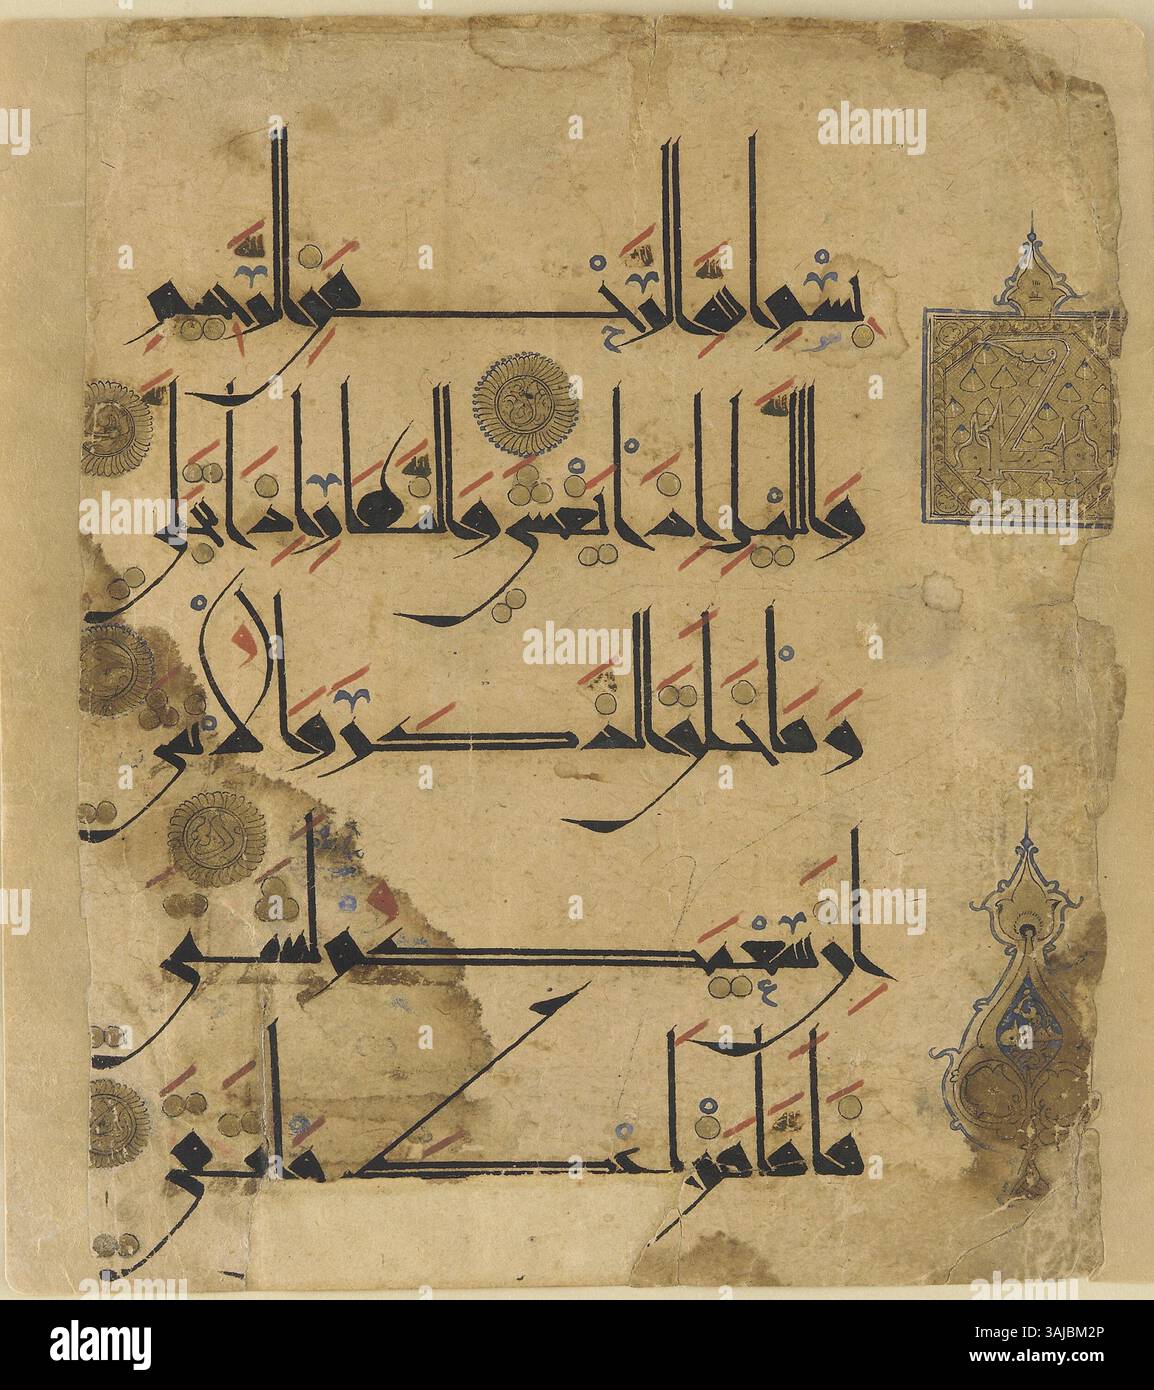 بِسْمِ اللَّهِ الرَّحْمَنِ الرَّحِيمِ
وَاللَّيْلِ إِذَا يَغْشَى وَالنَّهَارِ إِذَا تَجَلَّى
وَمَا خَلَقَ الذَّكَرَ وَالْأُنْثَى
إِنَّ سَعْيَكُمْ لَشَتَّى
فَأَمَّا مَنْ أَعْطَى وَاتَّقَى
alamy
Image ID: 3AJBM2P
www.alamy.com